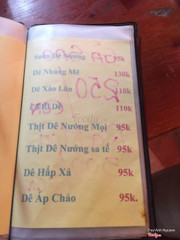 Dê Nướng 95k
Dê Nhúng Mẻ 130k
Dê Xào Lăn 110k
Cà Ri Dê 110k
Thịt Dê Nướng Mọi 95k
Thịt Dê Nướng sa tế 95k
Dê Hấp Xả 95k
Dê Áp Chảo 95k.